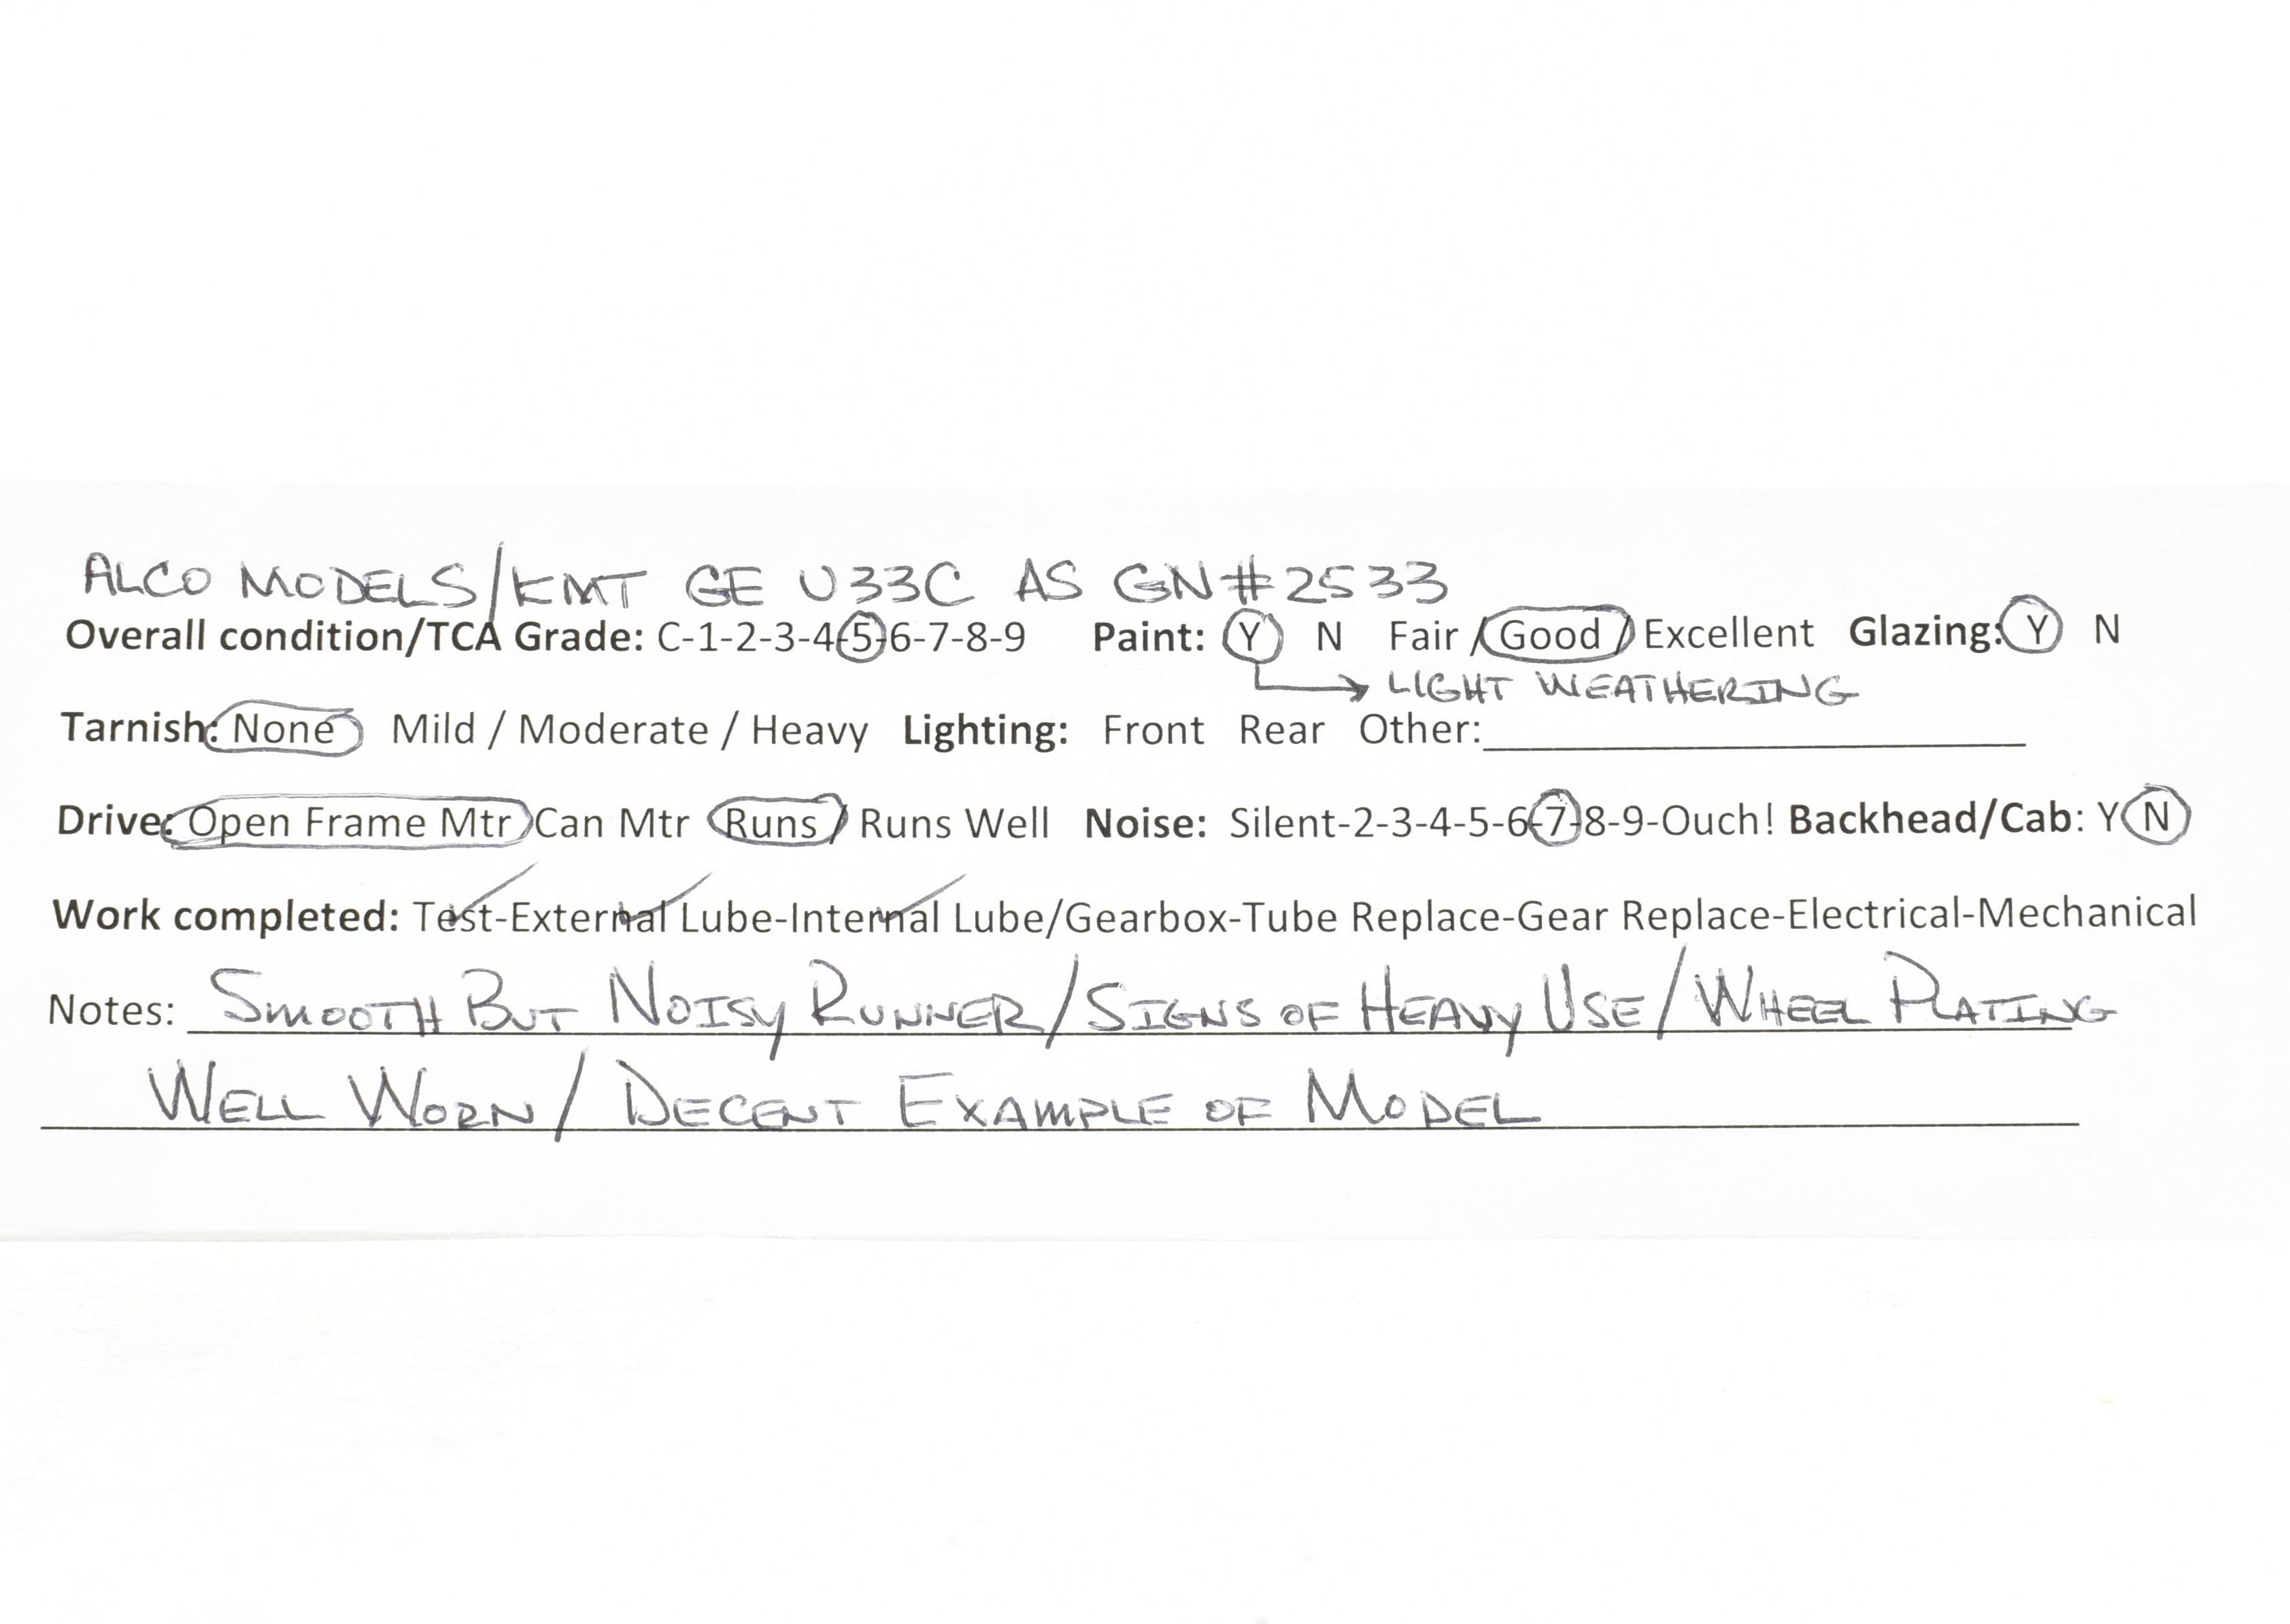 ALCO MODELS/KMT GE U33C AS GN#2533
Overall condition/TCA Grade: C-1-2-3-4-5-6-7-8-9 Paint: Y N Fair / Good / Excellent Glazing: Y N
LIGHT WEATHERING
Tarnish: None Mild / Moderate / Heavy Lighting: Front Rear Other:
Drive: Open Frame Mtr Can Mtr Runs / Runs Well Noise: Silent-2-3-4-5-6-7-8-9-Ouch! Backhead/Cab: Y N
Work completed: Test-External Lube-Internal Lube/Gearbox-Tube Replace-Gear Replace-Electrical-Mechanical
Notes: SMOOTH BUT NOISY RUNNER/SIGNS OF HEAVY USE/WHEEL PLATING
WELL WORN/DECENT EXAMPLE OF MODEL